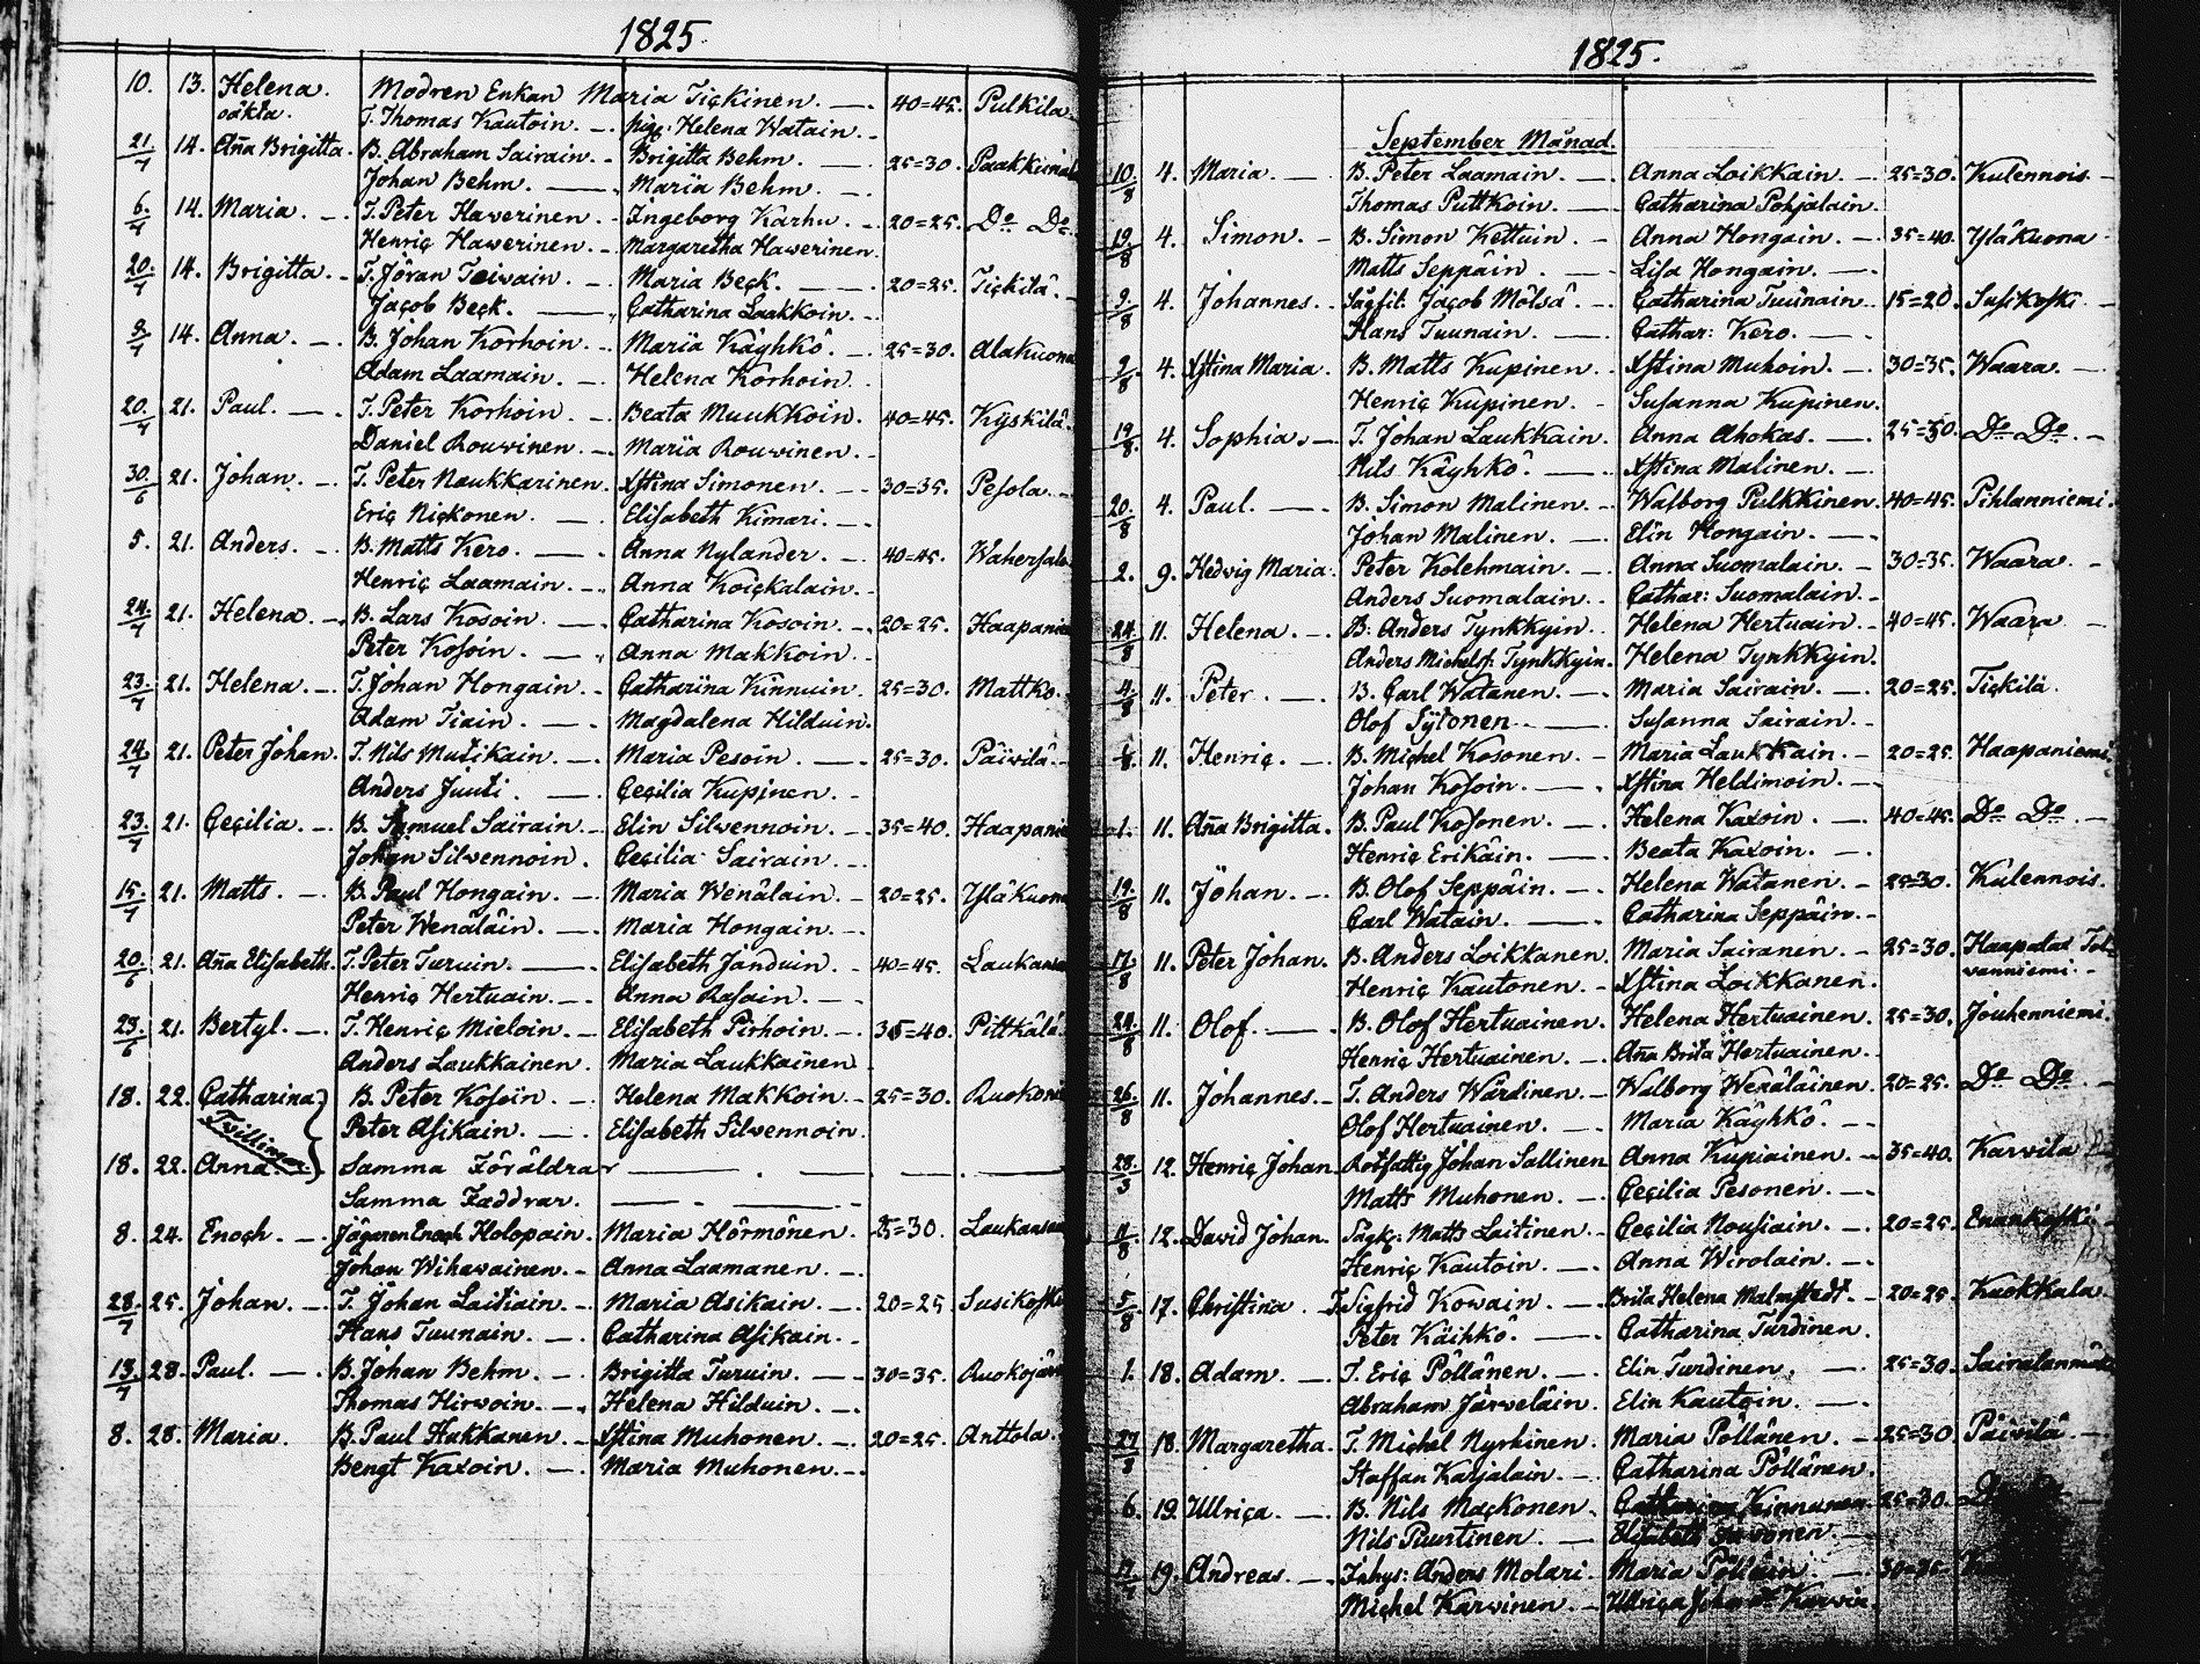 1825
10. 13. Helena. Modren Enkan Maria Tickinen. 40=45. Pulkila.
oäkta. T. Thomas Kautoin. Pig: Helena Watain.
21/7 14. Aña Brigitta. B. Abraham Sairain. Brigitta Behm. 25=30.
Johan Behm. Maria Behm.
6/7 14. Maria. T. Peter Hawerinen. Ingeborg Karhu. 20=25. Do Do.
Henric Hawerinen. Margaretha Hawerinen.
20/7 14. Brigitta. T. Jöran Teiwain. Maria Beck. 20=25. Tickilä.
Jacob Beck. Catharina Laakkoin.
9/7 14. Anna. B. Johan Korhoin. Maria Käyhkö. 25=30. Alakuona
Adam Laamain. Helena Korhoin.
20/7 21. Paul. T. Peter Korhoin. Beata Muukkoin. 40=45. Kyskilä.
Daniel Rouwinen. Maria Rouwinen.
30/6 21. Johan. T. Peter Naukkarinen. Xstina Simonen. 30=35. Pesola.
Eric Nickonen. Elisabeth Kimari.
5. 21. Anders. B. Matts Kero. Anna Nylander. 40=45. Wahersalo
Henric Laamain. Anna Koickalain.
24/7 21. Helena. B. Lars Kosoin. Catharina Kosoin. 20=25. Haapanie
Peter Kosoin. Anna Makkoin.
23/7 21. Helena. T. Johan Hongain. Catharina Kinnuin. 25=30. Mattko.
Adam Tiain. Magdalena Hilduin.
24/7 21. Peter Johan. T. Nils Mutikain. Maria Pesoin. 25=30. Päiwilä.
Anders Juuti. Cecilia Kupinen.
23/7 21. Cecilia. B. Samuel Sairain. Elin Silwennoin. 35=40. Haapanie
Johan Silwennoin. Cecilia Sairain.
15/7 21. Matts. B. Paul Hongain. Maria Wenäläin. 20=25. Yläkuona
Peter Wenäläin. Maria Hongain.
20/6 21. Aña Elisabeth. T. Peter Turuin. Elisabeth Janduin. 40=45. Laukansa
Henric Hertuain. Anna Rasain.
23/6 21. Bertyl. T. Henric Mieloin. Elisabeth Pirhoin. 35=40. Pittkälä
Anders Laukkainen. Maria Laukkainen
18. 22. Catharina B. Peter Kosoin. Helena Makkoin. 25=30. Ruokonie
Twillingar Peter Asikain. Elisabeth Silwennoin.
18. 22. Anna. Samma Föräldrar
Samma Faddrar.
8. 24. Enoch. Jägaren Enoch Holopain. Maria Hörmönen. 25=30. Laukansaa
Johan Wihawainen. Anna Laamanen.
28/7 25. Johan. T. Johan Laitiain. Maria Asikain. 20=25 Susikoski
Hans Tuunain. Catharina Asikain.
13/7 28. Paul. B. Johan Behm. Brigitta Turuin. 30=35. Ruokojärw
Thomas Hirwoin. Helena Hilduin.
8. 28. Maria. B. Paul Hakkanen. Xstina Muhonen. 20=25. Anttola.
Bengt Kaxoin. Maria Muhonen.
1825.
September Månad.
10/8 4. Maria. B. Peter Laamain. Anna Loikkain. 25=30. Kulennois.
Thomas Puttkoin. Catharina Pohjalain.
19/8 4. Simon. B. Simon Kettuin. Anna Hongain. 35=40. Yläkuona
Matts Seppäin. Lisa Hongain.
9/8 4. Johannes. Sågfit: Jacob Mölsä. Catharina Tuunain. 15=20. Susikoski
Hans Tuunain. Cathar: Kero.
2/8 4. Xstina Maria. B. Matts Kupinen. Xstina Muhoin. 30=35. Waara.
Henric Kupinen. Susanna Kupinen.
19/8 4. Sophia. T. Johan Laukkain. Anna Ahokas. 25=30. Do Do.
Nils Käyhkö. Xstina Malinen.
20/8 4. Paul. B. Simon Malinen. Walborg Pulkkinen. 40=45. Pihlanniemi.
Johan Malinen. Elin Hongain.
2. 9. Hedvig Maria. Peter Kolehmain. Anna Suomalain. 30=35. Waara.
Anders Suomalain. Cathar: Suomalain.
24/8 11. Helena. B. Anders Tynkkyin. Helena Hertuain. 40=45. Waara
Anders Michelss: Tynkkyin. Helena Tynkkyin.
4/8 11. Peter. B. Carl Watanen. Maria Sairain. 20=25. Tickilä.
Olof Sytonen. Susanna Sairain.
11. Henric. B. Michel Kosonen. Maria Laukkain. 20=25. Haapaniemi.
Johan Kosoin. Xstina Heldimoin.
1. 11. Aña Brigitta. B. Paul Kosonen. Helena Kaxoin. 40=45. Do Do.
Henric Erikäin. Beata Kaxoin.
19/8 11. Johan. B. Olof Seppäin. Helena Watanen. 25=30. Kulennois.
Carl Watain. Catharina Seppäin.
17/8 11. Peter Johan. B. Anders Loikkanen. Maria Sairanen. 25=30. Haapalax
Henric Kautonen. Xstina Loikkanen. wanniemi.
24/8 11. Olof. B. Olof Hertuainen. Helena Hertuainen. 25=30. Jouhenniemi.
Henric Hertuainen. Aña Brita Hertuainen.
26/8 11. Johannes. T. Anders Wärdinen. Walborg Wenäläinen. 20=25. Do Do.
Olof Hertuainen. Maria Käyhkö.
28/3 12. Henric Johan Rotfattig Johan Sallinen Anna Kupiainen. 35=40. Karwila
Matts Muhonen. Cecilia Pesonen.
11/8 12. David Johan. Sågk: Matts Laitinen. Cecilia Nousiain. 20=25. Enankoski
Henric Kautoin. Anna Wirolain.
5/8 17. Christina. T. Sigfrid Kowain. Brita Helena Malmstedt. 20=25. Kuokkala.
Peter Käihkö. Catharina Turdinen.
1. 18. Adam. T. Eric Pöllänen. Elin Turdinen. 25=30. Sairalanmäki
Abraham Järweläin. Elin Kautoin.
27/8 18. Margaretha. T. Michel Nyrhinen. Maria Pöllänen. 25=30. Päiwilä.
Staffan Karjalain. Catharina Pöllänen.
6. 19. Ulrica. B. Nils Mackonen. Catharina Kinnunen. 25=30.
Nils Puustinen. Elisabeth
19. Andreas. Inhys: Anders Molari. Maria Pölläin. 30=35.
Michel Karwinen. Ulrica